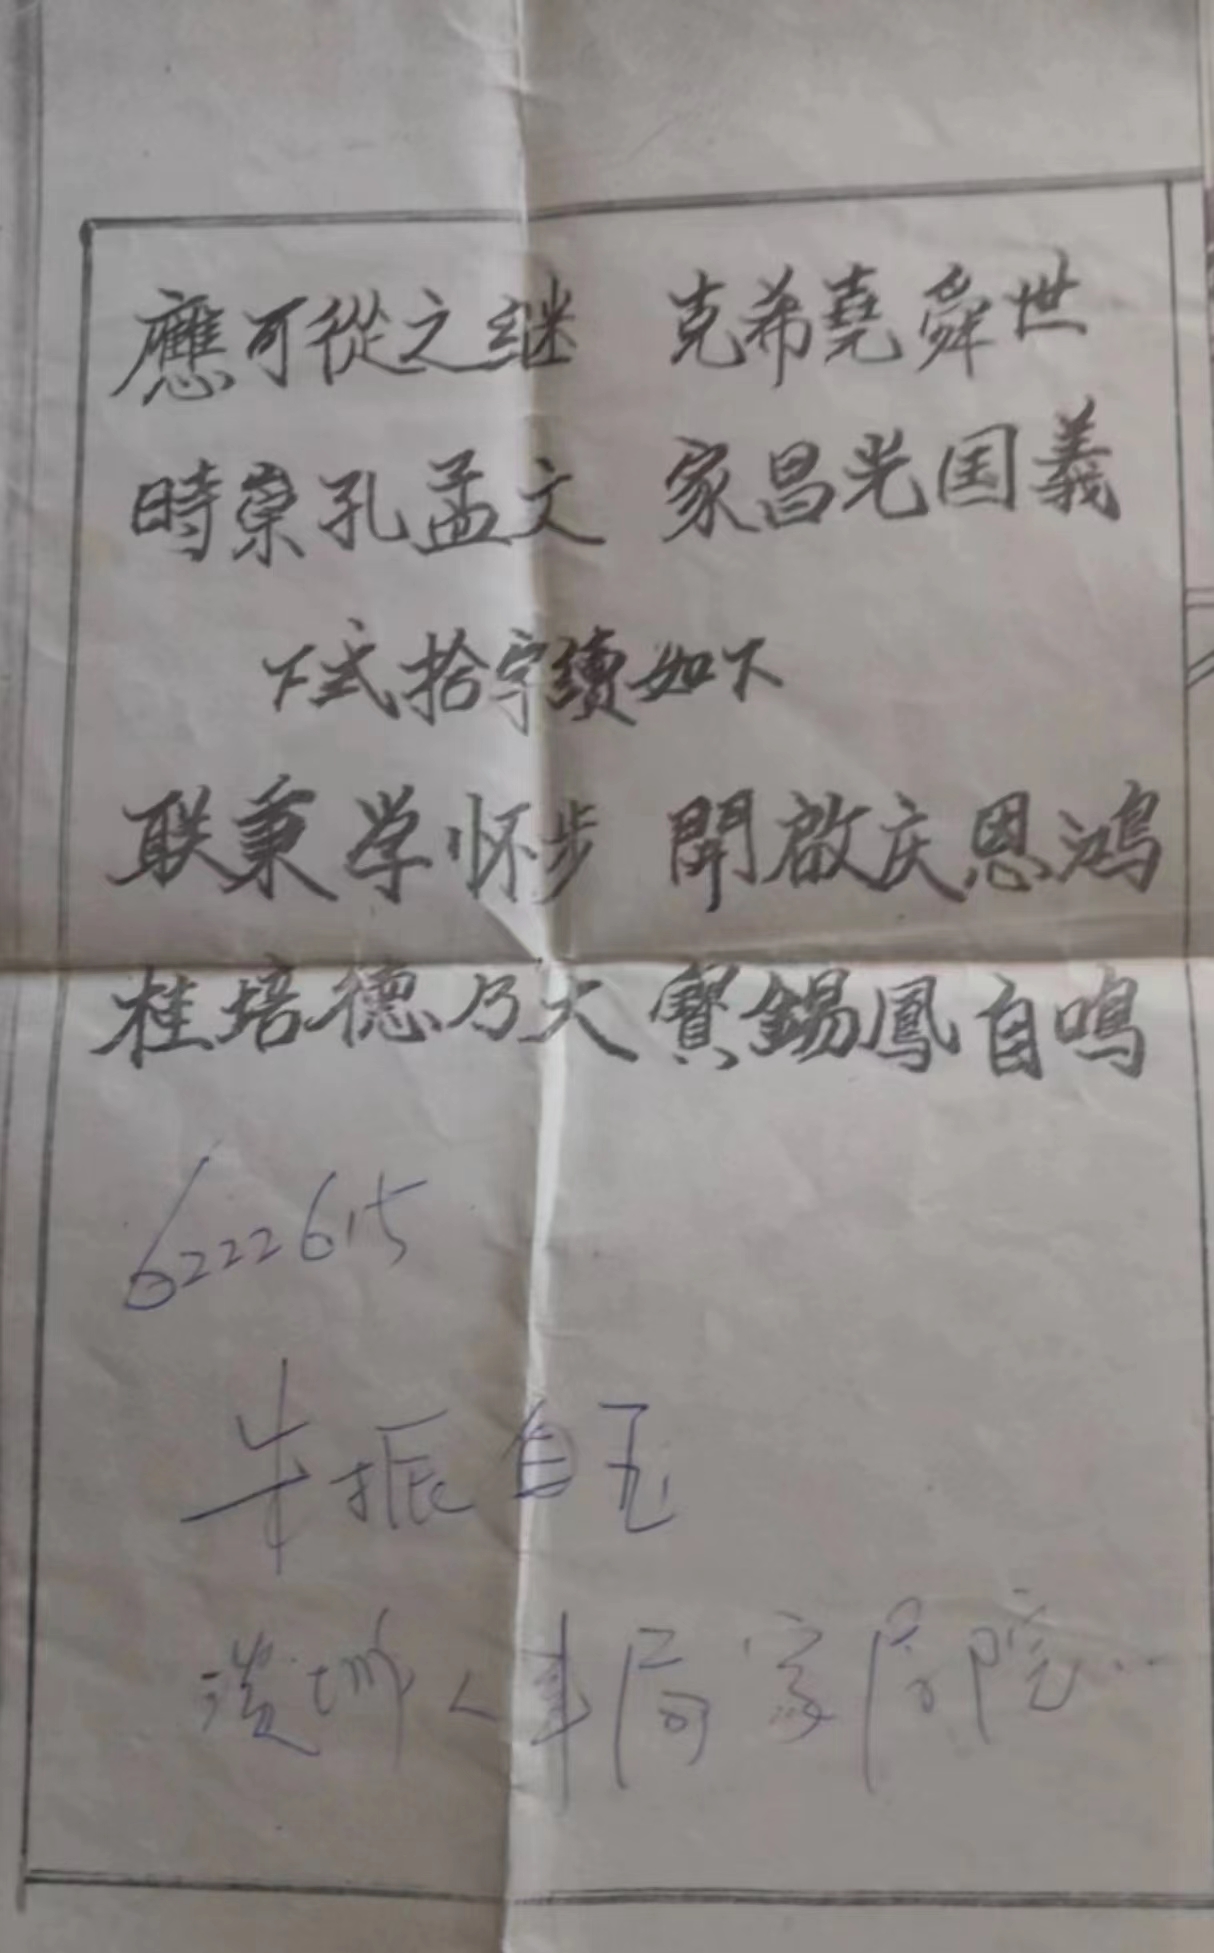 應可從之継 克希堯舜世
時崇孔孟文 家昌光国義
下式拾字續如下
联秉学怀步 開啟庆恩鴻
桂培德乃大 寳錫鳳自鳴
6222615
牛振自玉
人事局家属院